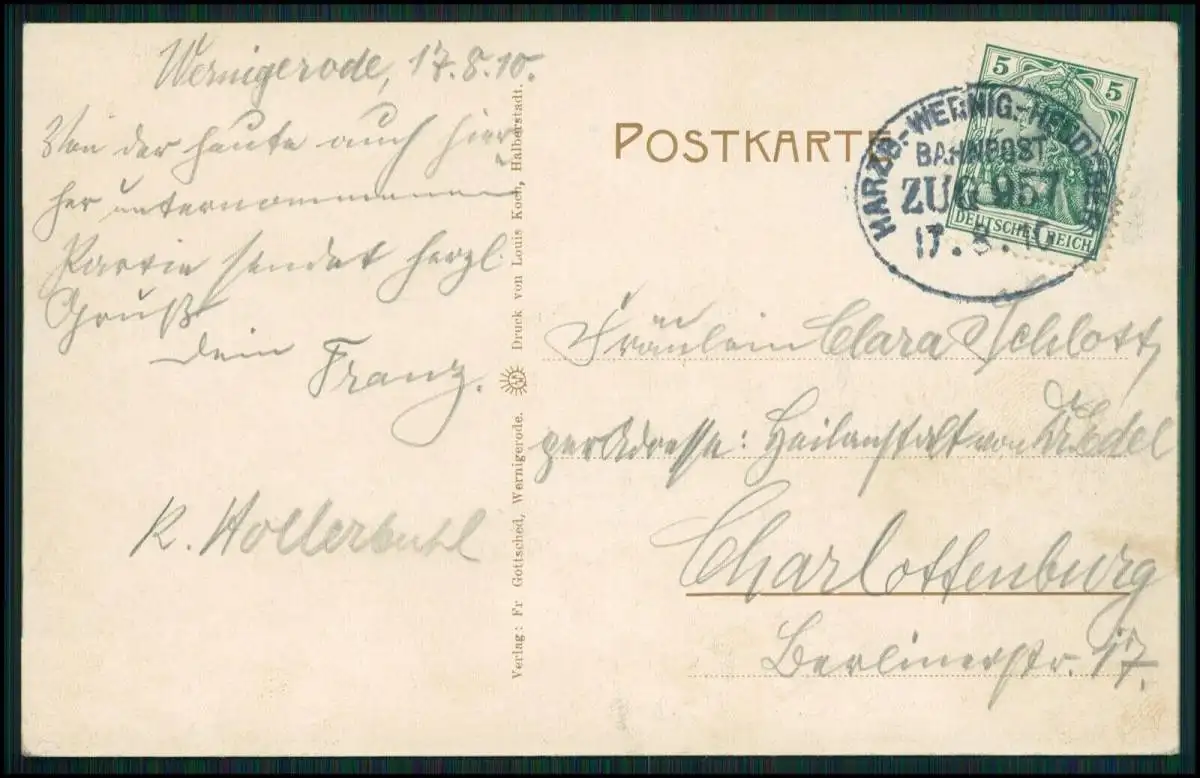 Wernigerode, 17.8.10.
Von der heute auch hier
her unternommenen
Partie sendet herzl.
Gruß
Dein Franz.
K. Hollerbuhl
Verlag: Fr Gottsched, Wernigerode. Druck von Louis Koch, Halberstadt.
POSTKARTE
5 5
DEUTSCHES REICH
HARZB.-WERNIG.-HEUDEBER
BAHNPOST
ZUG 957
17.8.10
Fräulein Clara Schlott,
per Adresse: Heilanstalt von
Charlottenburg
Berlinerstr. 17.